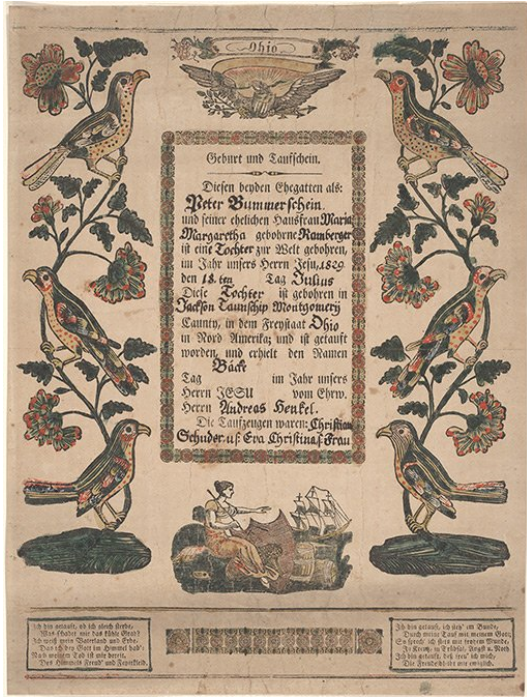 Ohio
Geburt und Taufschein.
Diesen beyden Ehegatten als:
Peter Bummerschein,
und seiner ehelichen Hausfrau Maria
Margaretha gebohrne Ramberger
ist eine Tochter zur Welt gebohren,
im Jahr unsers Herrn Jesu, 1829
den 18.ten Tag Julius
Diese Tochter ist gebohren in
Jackson Taunschip Montgomerÿ
Caunty, in dem Freystaat Ohio
in Nord Amerika; und ist getauft
worden, und erhielt den Namen
Bäck
Tag im Jahr unsers
Herrn JESU vom Ehrw.
Herrn Andreas Henkel.
Die Taufzeugen waren: Christian
Schuder u.s. Eva Christina s. Frau
Ich bin getauft, ob ich gleich sterbe,
Was schadet mir das kühle Grab?
Ich weiß mein Vaterland und Erbe,
Das ich bey Gott im Himmel hab':
Nach meinem Tod ist mir bereit,
Des Himmels Freud' und Feyerkleid.
Ich bin getauft, ich steh' im Bunde,
Durch meine Tauf mit meinem Gott,
So sprech' ich stets mit frohem Munde,
In Kreutz, in Trübsal, Angst u. Noth
Ich bin getauft, deß freu' ich mich,
Die Freude bleibt mir ewiglich.